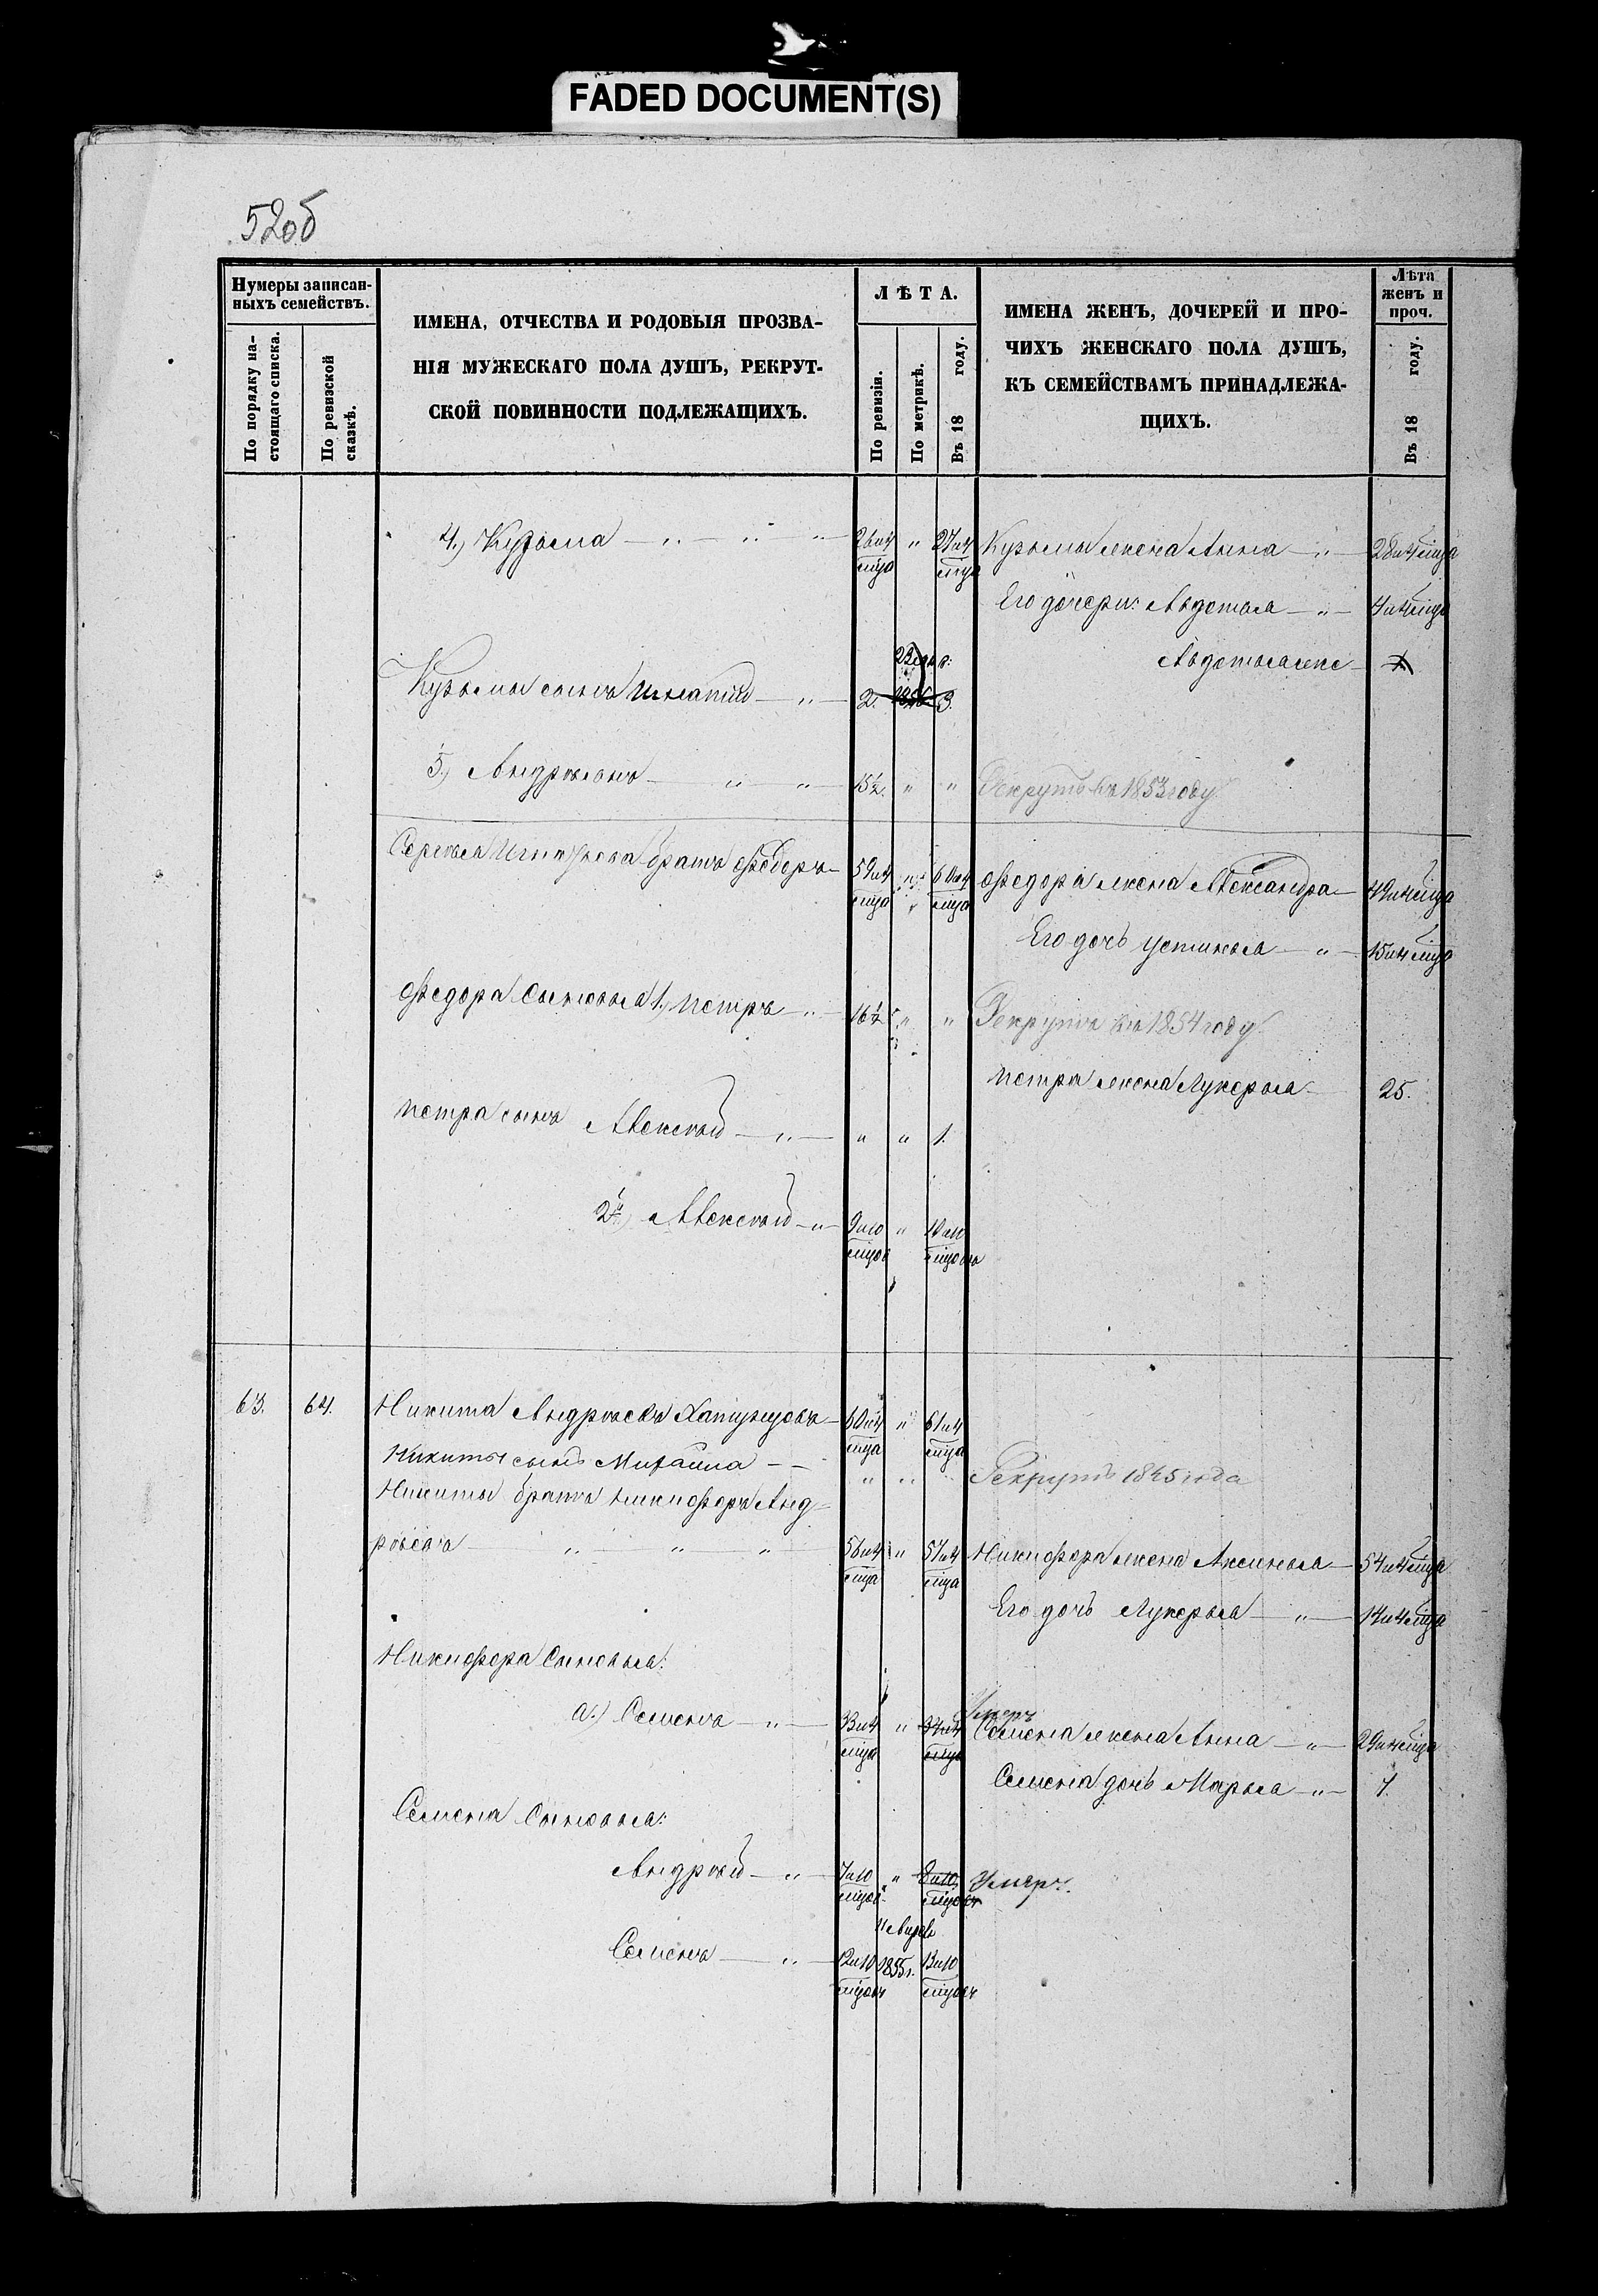 FADED DOCUMENT(S)
52об
Нумеры записан-
ныхъ семействъ.
По порядку на-
стоящаго списка.
По ревизской
сказкѣ.
ИМЕНА, ОТЧЕСТВА И РОДОВЫЯ ПРОЗВА-
НІЯ МУЖЕСКАГО ПОЛА ДУШЪ, РЕКРУТ-
СКОЙ ПОВИННОСТИ ПОДЛЕЖАЩИХЪ.
ЛѢТА.
По ревизіи.
По метрикѣ.
Въ 18 году.
ИМЕНА ЖЕНЪ, ДОЧЕРЕЙ И ПРО-
ЧИХЪ ЖЕНСКАГО ПОЛА ДУШЪ,
КЪ СЕМЕЙСТВАМЪ ПРИНАДЛЕЖА-
ЩИХЪ.
Лѣта
женъ и
проч.
Въ 18 году.
4.) Кузьма — „ — „ — „ 26 и 4 мца „ 27 и 4 мца Кузьмы жена Анна — „ — 28 и 4 мца
Его дочери: Авдотья — „ — 4 и 4 мца
Авдотья
Кузьмы сынъ Игнатій — „ — 2. 3.
5.) Андреянъ — „ — „ — 15½. „ „ Рекрутъ въ 1853 году
братъ Федоръ — 59 и 4 мца „ 60 и 4 мца Федора жена Александра — 49 и 4 мца
Его дочь Устинья — „ — 15 и 4 мца
Федора сыновья 1.) Петръ — „ — 16½ „ „ Рекрутъ въ 1854 году
Петра жена Лукерья — 25.
Петра сынъ Алексѣй — „ — „ „ 1.
2.) Алексѣй — „ — 9 и 10 мцов „ 10 и 10 мцовъ
63. 64. Никита Андреевъ Хатунцовъ — 60 и 4 мца „ 61 и 4 мца
Никиты сынъ Михайла — — „ „ Рекрутъ 1845 года
Никиты братъ Никифоръ Анд-
реевъ — „ — „ — „ — 56 и 4 мца „ 57 и 4 мца Никифора жена Аксинья — 54 и 4 мца
Его дочь Лукерья — „ — 14 и 4 мца
Никифора сыновья:
а.) Семенъ — „ — 33 и 4 мца „ 34 и 4 мца Умеръ
Семена жена Анна — „ — 29 и 4 мца
Семена дочь Марья — „ —
Семена сыновья:
Андрей — „ — 7 и 10 мцов „ 8 и 10 мцовъ Умеръ.
Семенъ — „ — 12 и 10 мцовъ 1855 г. 13 и 10 мцовъ